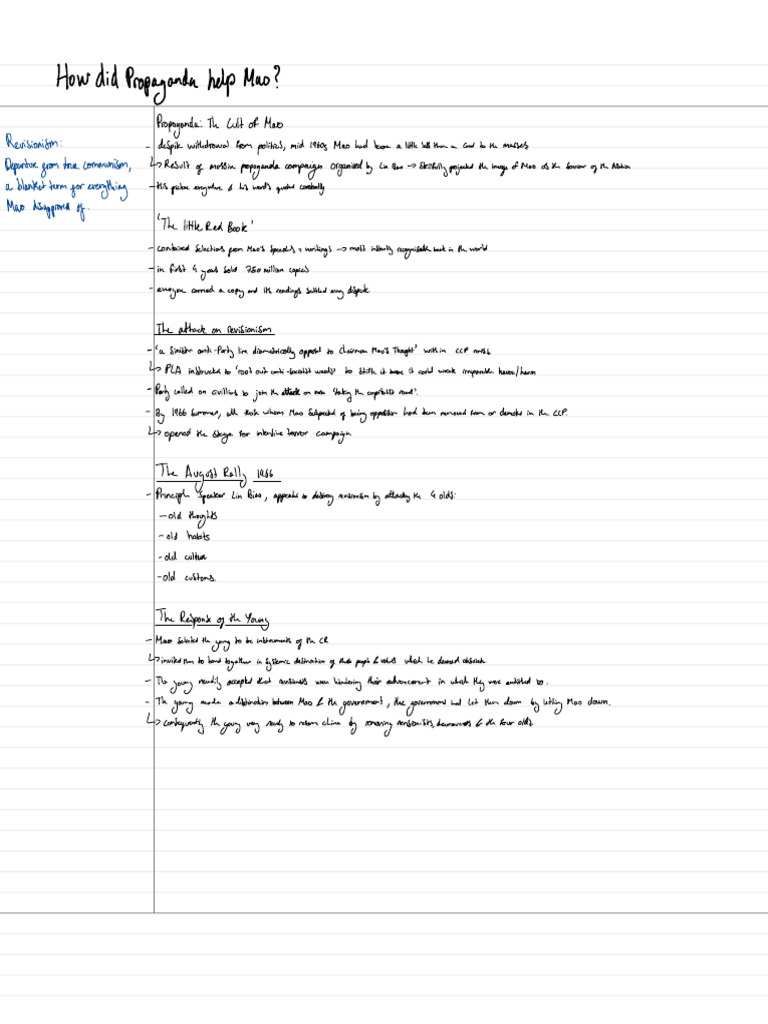 How did Propaganda help Mao?
Revisionism:
Departure from true communism,
a blanket term for everything
Mao disapproved of.
Propaganda: The Cult of Mao
- despite withdrawal from politics, mid 1960s Mao had been a little less than a God to the masses
↳ Result of massive propaganda campaign organised by Lin Biao → skilfully projected the image of Mao as the Saviour of the Nation
- His picture everywhere & his words quoted constantly
'The little Red Book'
- contained selections from Mao's speeches & writings → most instantly recognisable book in the world
- in first 4 years sold 750 million copies
- everyone carried a copy and its readings settled any dispute
The attack on revisionism
- 'a sinister anti-Party line diametrically opposed to Chairman Mao's Thought' within CCP
↳ PLA instructed to 'root out anti-socialist weeds' to it could irreparable havoc/harm
- Party called on civilians to join the attack on men 'taking the capitalist road'.
- By 1966 Summer, all those whom Mao suspected of being opposition had been removed from or demoted in the CCP.
↳ opened the stage for intensive terror campaign
The August Rally 1966
- Principle Speaker Lin Biao, appeals to destroy revisionism by attacking the 4 olds:
- old thoughts
- old habits
- old culture
- old customs.
The Response of the Young
- Mao selected the young to be instruments of the CR
↳ invited them to band together in systemic of those people & values which he deemed obsolete
- The young readily accepted that revisionists were hindering their advancement in which they were entitled to.
- The young made a distinction between Mao & the government, the government had let them down by letting Mao down.
↳ consequently the young very ready to reform china by removing revisionists, & the four olds.